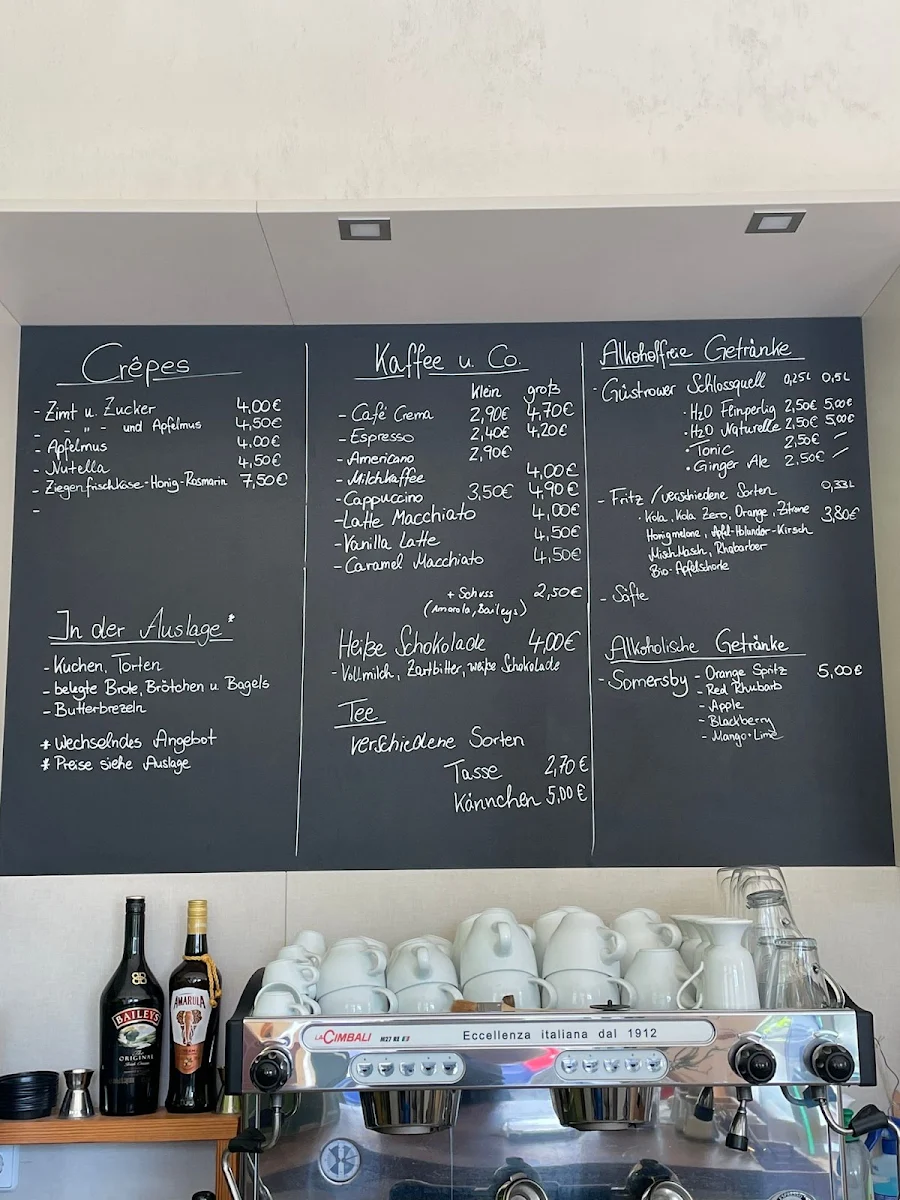 Crêpes
- Zimt u. Zucker 4,00€
- " - und Apfelmus 4,50€
- Apfelmus 4,00€
- Nutella 4,50€
- Ziegenfrischkäse-Honig-Rosmarin 7,50€
-
In der Auslage*
- Kuchen, Torten
- belegte Brote, Brötchen u. Bagels
- Butterbrezeln
* Wechselndes Angebot
* Preise siehe Auslage
Kaffee u. Co.
klein groß
- Café Crema 2,90€ 4,70€
- Espresso 2,40€ 4,20€
- Americano 2,90€
- Milchkaffee 4,00€
- Cappuccino 3,50€ 4,90€
- Latte Macchiato 4,00€
- Vanilla Latte 4,50€
- Caramel Macchiato 4,50€
+ Schuss 2,50€
(Amarula, Baileys)
Heiße Schokolade 4,00€
- Vollmilch, Zartbitter, weiße Schokolade
Tee
verschiedene Sorten
Tasse 2,70€
Kännchen 5,00€
Alkoholfreie Getränke
· Güstrower Schlossquell 0,25L 0,5L
· H2O Feinperlig 2,50€ 5,00€
· H2O Naturelle 2,50€ 5,00€
· Tonic 2,50€ -
· Ginger Ale 2,50€ -
- Fritz / verschiedene Sorten 0,33L
· Kola, Kola Zero, Orange, Zitrone 3,80€
Honigmelone, Apfel-Holunder-Kirsch
MischMasch, Rhabarber
Bio-Apfelschorle
- Säfte
Alkoholische Getränke
- Somersby - Orange Spitz 5,00€
- Red Rhubarb
- Apple
- Blackberry
- Mango-Lime
BAILEYS
ORIGINAL
AMARULA
LA CIMBALI M27 RE E3 Eccellenza italiana dal 1912